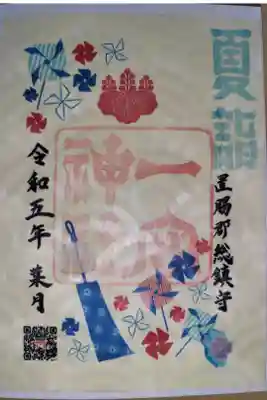 夏詣
郡総鎮守
一宮
神社
令和五年 葉月